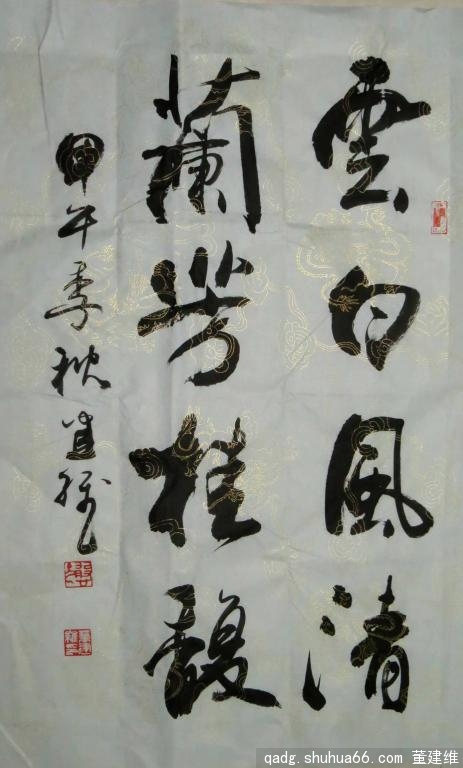 雲白風清
蘭芳桂馥
甲午季秋建維
qadg.shuhua66.com 董建维